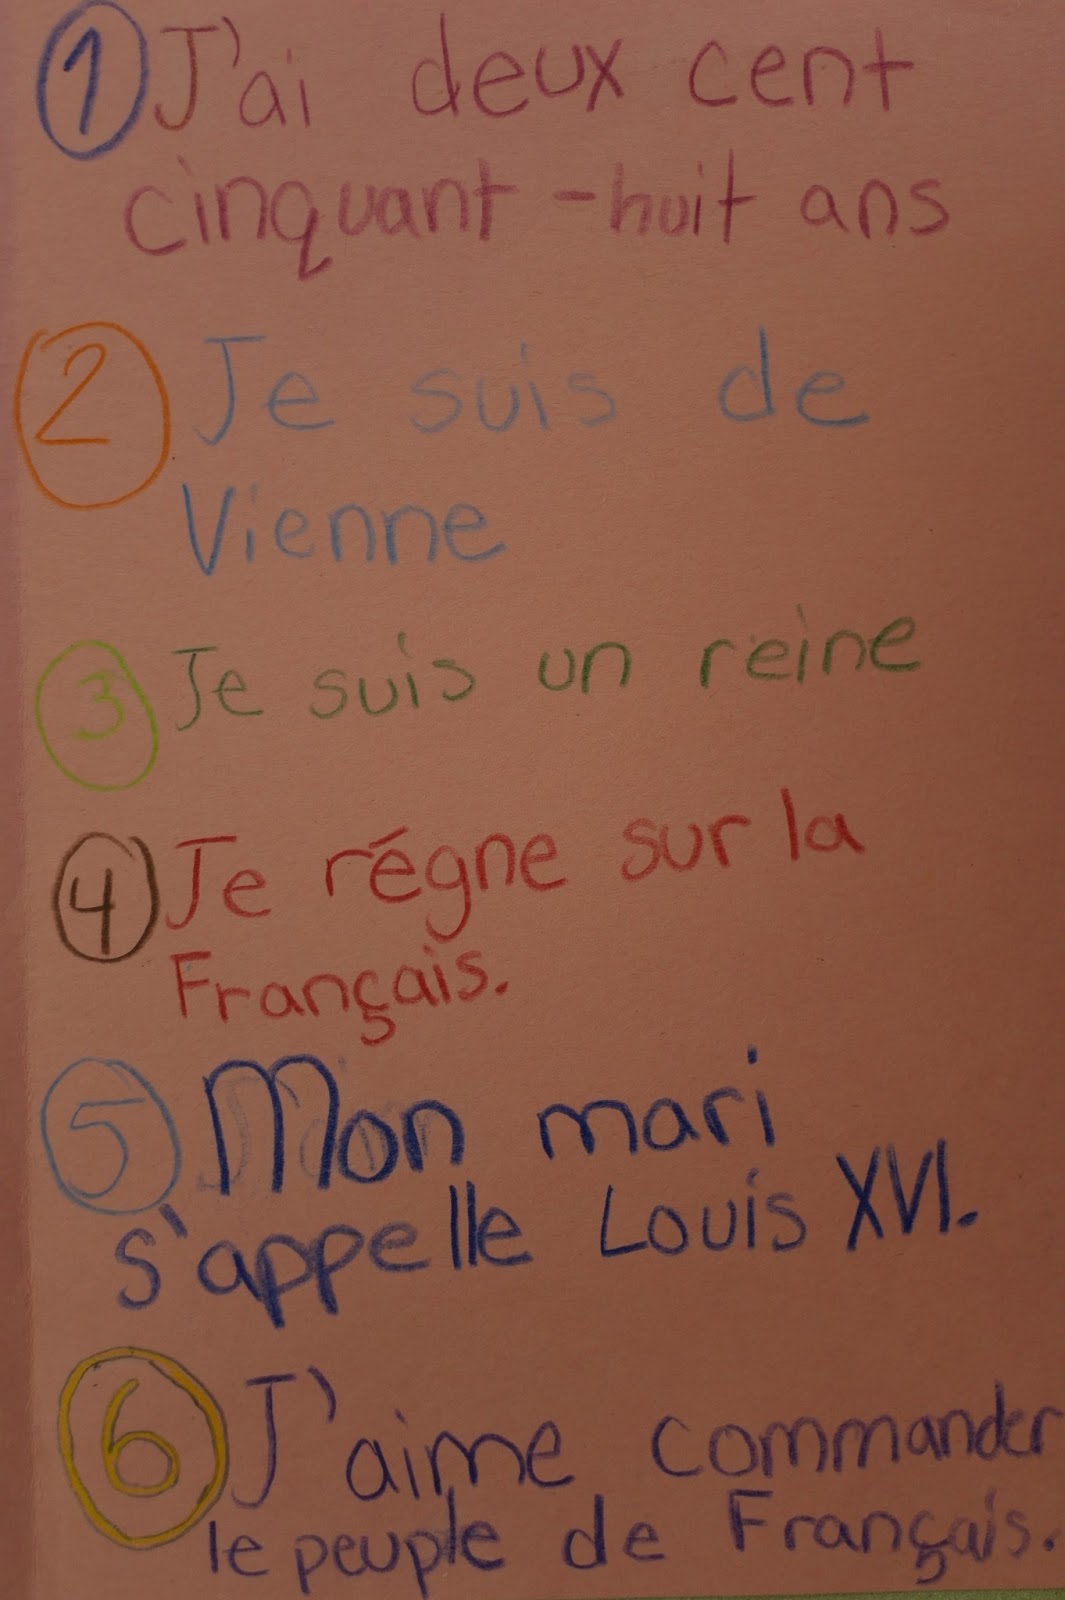 1 J'ai deux cent
cinquant-huit ans
2 Je suis de
Vienne
3 Je suis un reine
4 Je régne sur la
Français.
5 Mon mari
s'appelle Louis XVI.
6 J'aime commander
le peuple de Français.